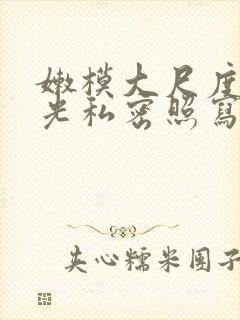 嫩模大尺度
光私密照寫
夹心糯米团子